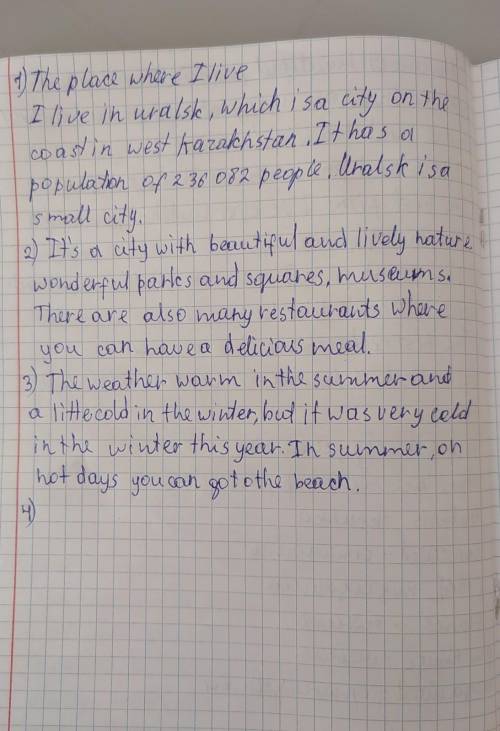 1) The place where I live
I live in uralsk, which is a city on the
coast in west Kazakhstan. It has a
population of 236 082 people. Uralsk is a
small city.
2) It's a city with beautiful and lively nature
wonderful parks and squares, museums.
There are also many restaurants where
you can have a delicious meal.
3) The weather warm in the summer and
a litte cold in the winter, but it was very cold
in the winter this year. In summer, on
hot days you can go to the beach.
4)